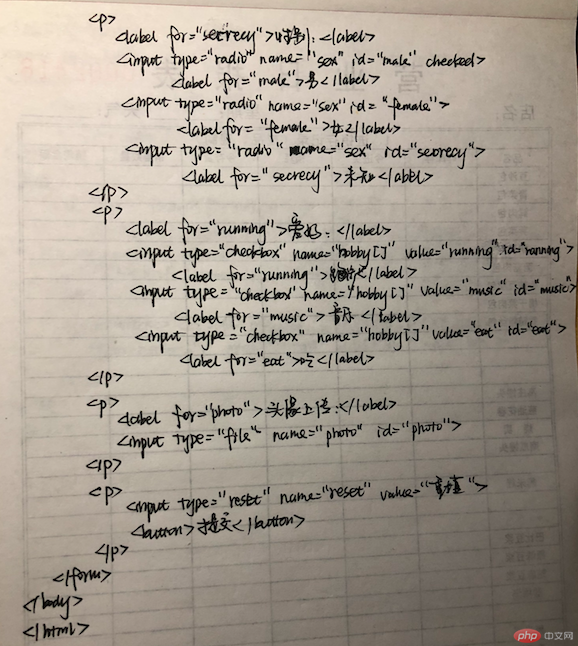 <p>
<label for="secrecy">性别:</label>
<input type="radio" name="sex" id="male" checked>
<label for="male">男</label>
<input type="radio" name="sex" id="female">
<label for="female">女</label>
<input type="radio" name="sex" id="secrecy">
<label for="secrecy">未知</label>
</p>
<p>
<label for="running">爱好:</label>
<input type="checkbox" name="hobby[]" value="running" id="running">
<label for="running"></label>
<input type="checkbox" name="hobby[]" value="music" id="music">
<label for="music">音乐</label>
<input type="checkbox" name="hobby[]" value="eat" id="eat">
<label for="eat">吃</label>
</p>
<p>
<label for="photo">头像上传:</label>
<input type="file" name="photo" id="photo">
</p>
<p>
<input type="reset" name="reset" value="重置">
<button>提交</button>
</p>
</form>
</body>
</html>
php 中文网